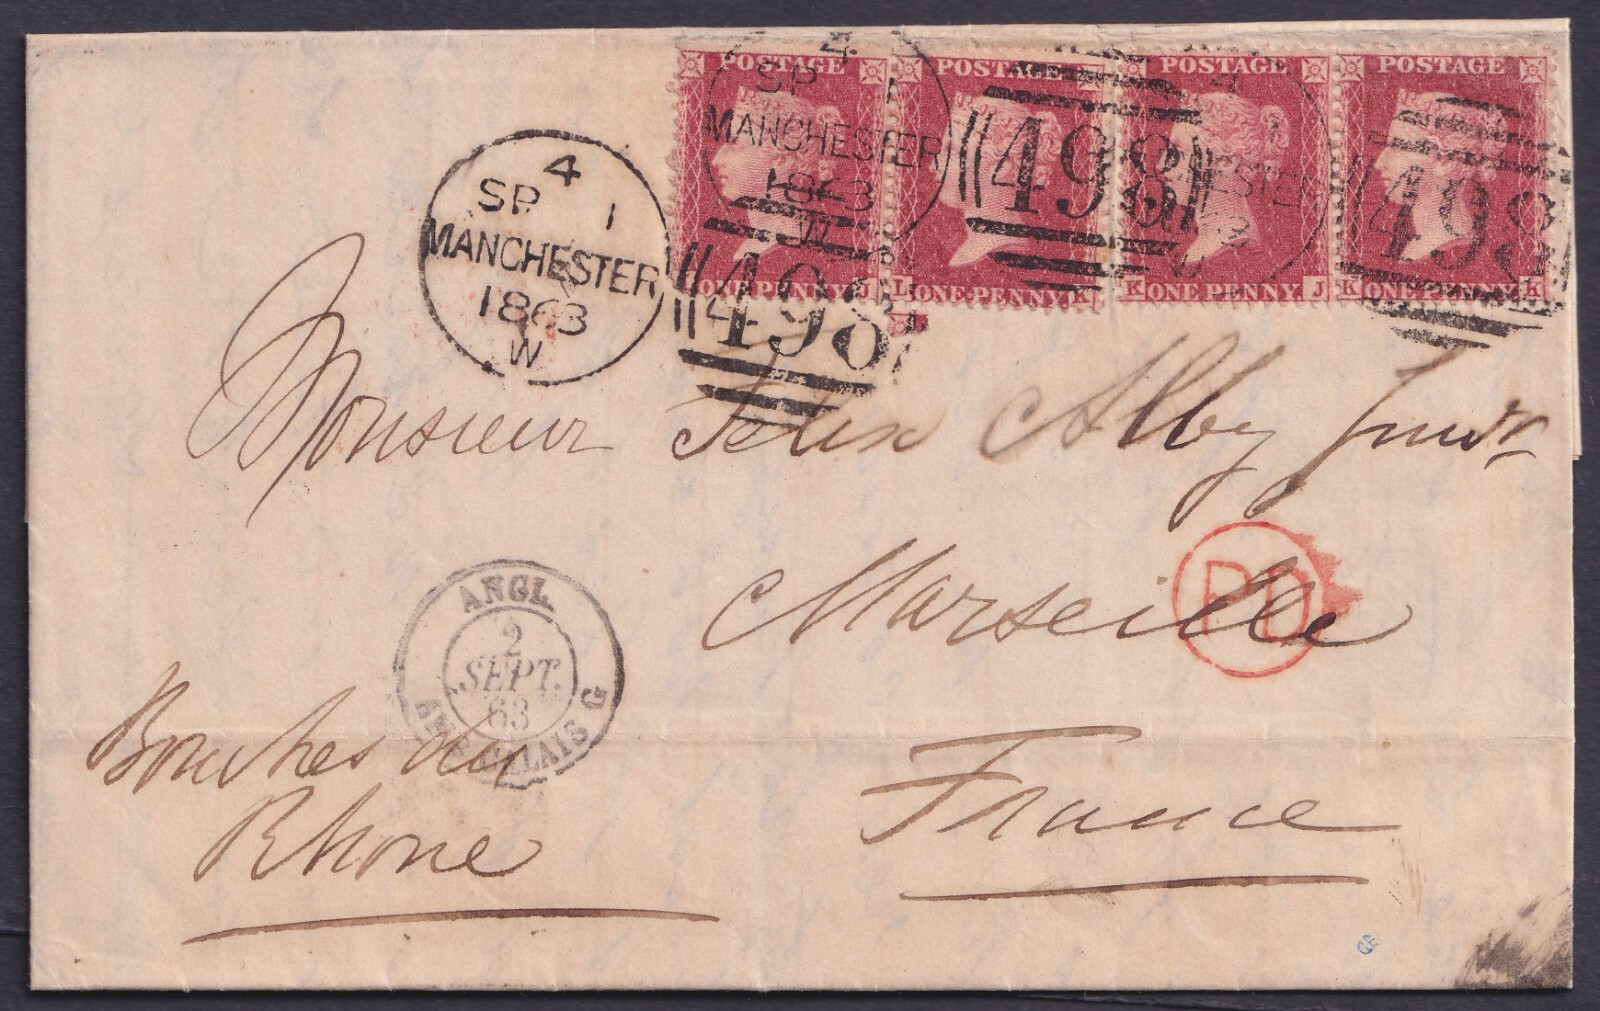 POSTAGE POSTAGE POSTAGE POSTAGE
ONE PENNY J
L ONE PENNY K
K ONE PENNY J
K ONE PENNY K
4
SP 1
MANCHESTER
1863
W
4
SP
MANCHESTER
1863
498
498
498
Monsieur Felix Alby
Marseille
PD
ANGL.
2
SEPT.
63
AMB. CALAIS G
Bouches du
Rhone
France